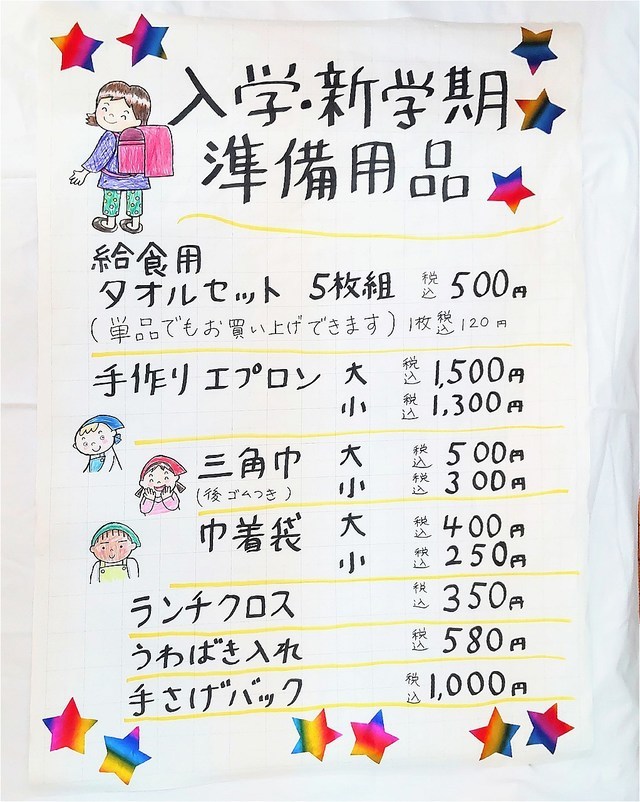 入学・新学期
準備用品
給食用
タオルセット 5枚組 税込 500円
(単品でもお買い上げできます) 1枚 税込 120円
手作り エプロン 大 税込 1,500円
小 税込 1,300円
三角巾 大 税込 500円
(後ゴムつき) 小 税込 300円
巾着袋 大 税込 400円
小 税込 250円
ランチクロス 税込 350円
うわばき入れ 税込 580円
手さげバック 税込 1,000円